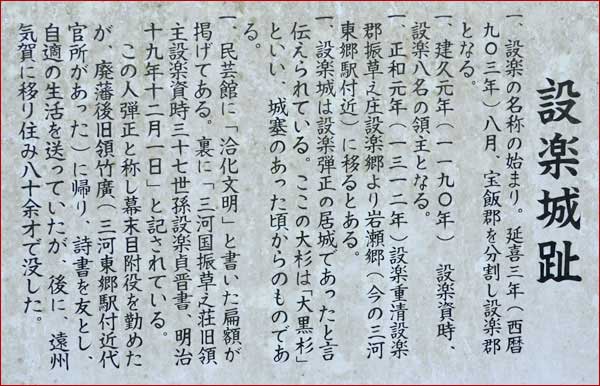 設楽城趾
一、設楽の名称の始まり。延喜三年（西暦
九〇三年）八月、宝飯郡を分割し設楽郡
となる。
一、建久元年（一一九〇年）　設楽資時、
設楽八名の領主となる。
一、正和元年（一三一二年）設楽重清設楽
郡振草之庄設楽郷より岩瀬郷（今の三河
東郷駅付近）に移るとある。
一、設楽城は設楽弾正の居城であったと言
伝えられている。ここの大杉は「大黒杉」
といい、城塞のあった頃からのものであ
る。
一、民芸館に「洽化文明」と書いた扁額が
掲げてある。裏に「三河国振草之荘旧領
主設楽資時三十七世孫設楽貞晋書、明治
十九年十二月一日」と記されている。
この人弾正と称し幕末目附役を勤めた
が、廃藩後旧領竹廣（三河東郷駅付近代
官所があった）に帰り、詩書を友とし、
自適の生活を送っていたが、後に、遠州
気賀に移り住み八十余才で没した。